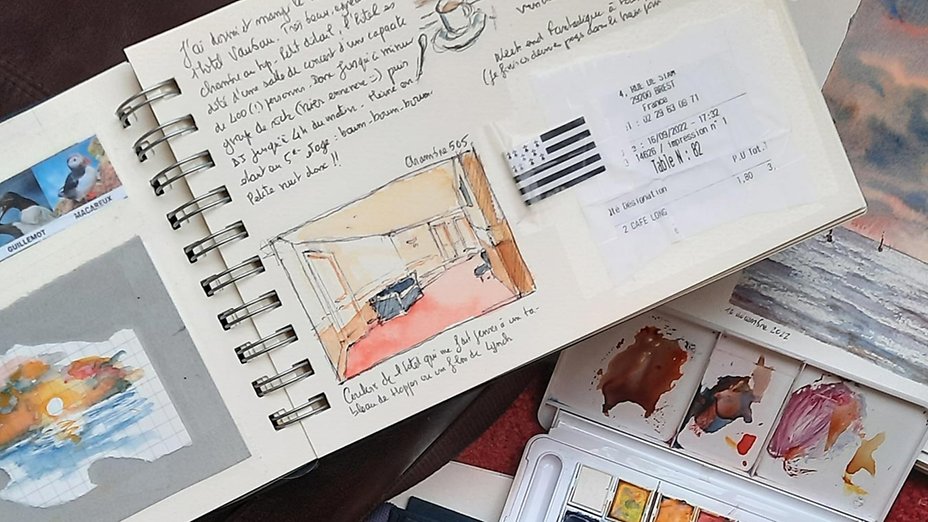 J'ai dormi et mangé le
Hotel Vauban. Très beau,
chambre au top. Petit détail, l'hôtel est
doté d'une salle de concert d'une capacité
de 400 (!) personnes. Donc jusqu'à minuit
groupe de rock puis
DJ jusqu'à 4h du matin. Même en
étant au 5e étage: boum-boum-boum.
Petite nuit donc !!
Chambre 505
Couloir de l'hôtel qui me fait penser à un ta-
bleau de Hopper ou un film de Lynch
Week end fantastique à
4, RUE DE SIAM
29200 BREST
France
: 02 29 63 06 71
: 16/09/2022 - 17:32
: 14626 / Impression n° 1
Table N : 82
Qté Désignation P.U Tot.T
2 CAFE LONG 1,80 3,
GUILLEMOT
MACAREUX
2022